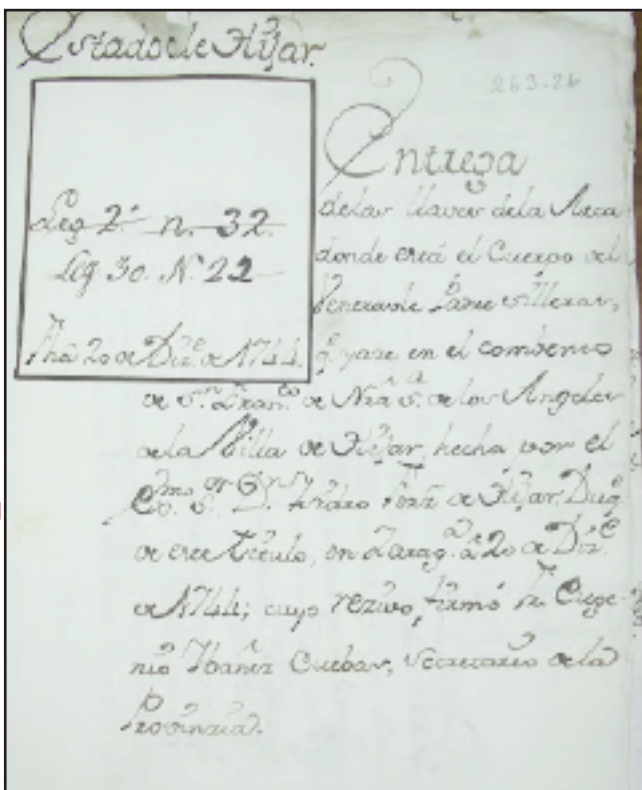 Estado de Hijar.
263-26
Leg 2.º n. 32.
Leg 30. N. 22
Fha 20 de Dizᵉ de 1744.
Entrega
delas llaves dela Arca
donde está el Cuerpo del
Venerable Padre
q yaze en el combento
de Sⁿ Franᶜᵒ de Nrâ Sᵃ delos Angeles
dela Villa de Hijar, hecha por el
Exᵐᵒ Sᵒʳ Dⁿ Isidro de Hijar Duqᵉ
de este Titulo, en Zaragᵃ a 20 de Dizᵉ
de 1744; cuyo rezivo, firmó Fr. Euge-
nio Ibañez Cuebas, Secretario dela
Provincia.